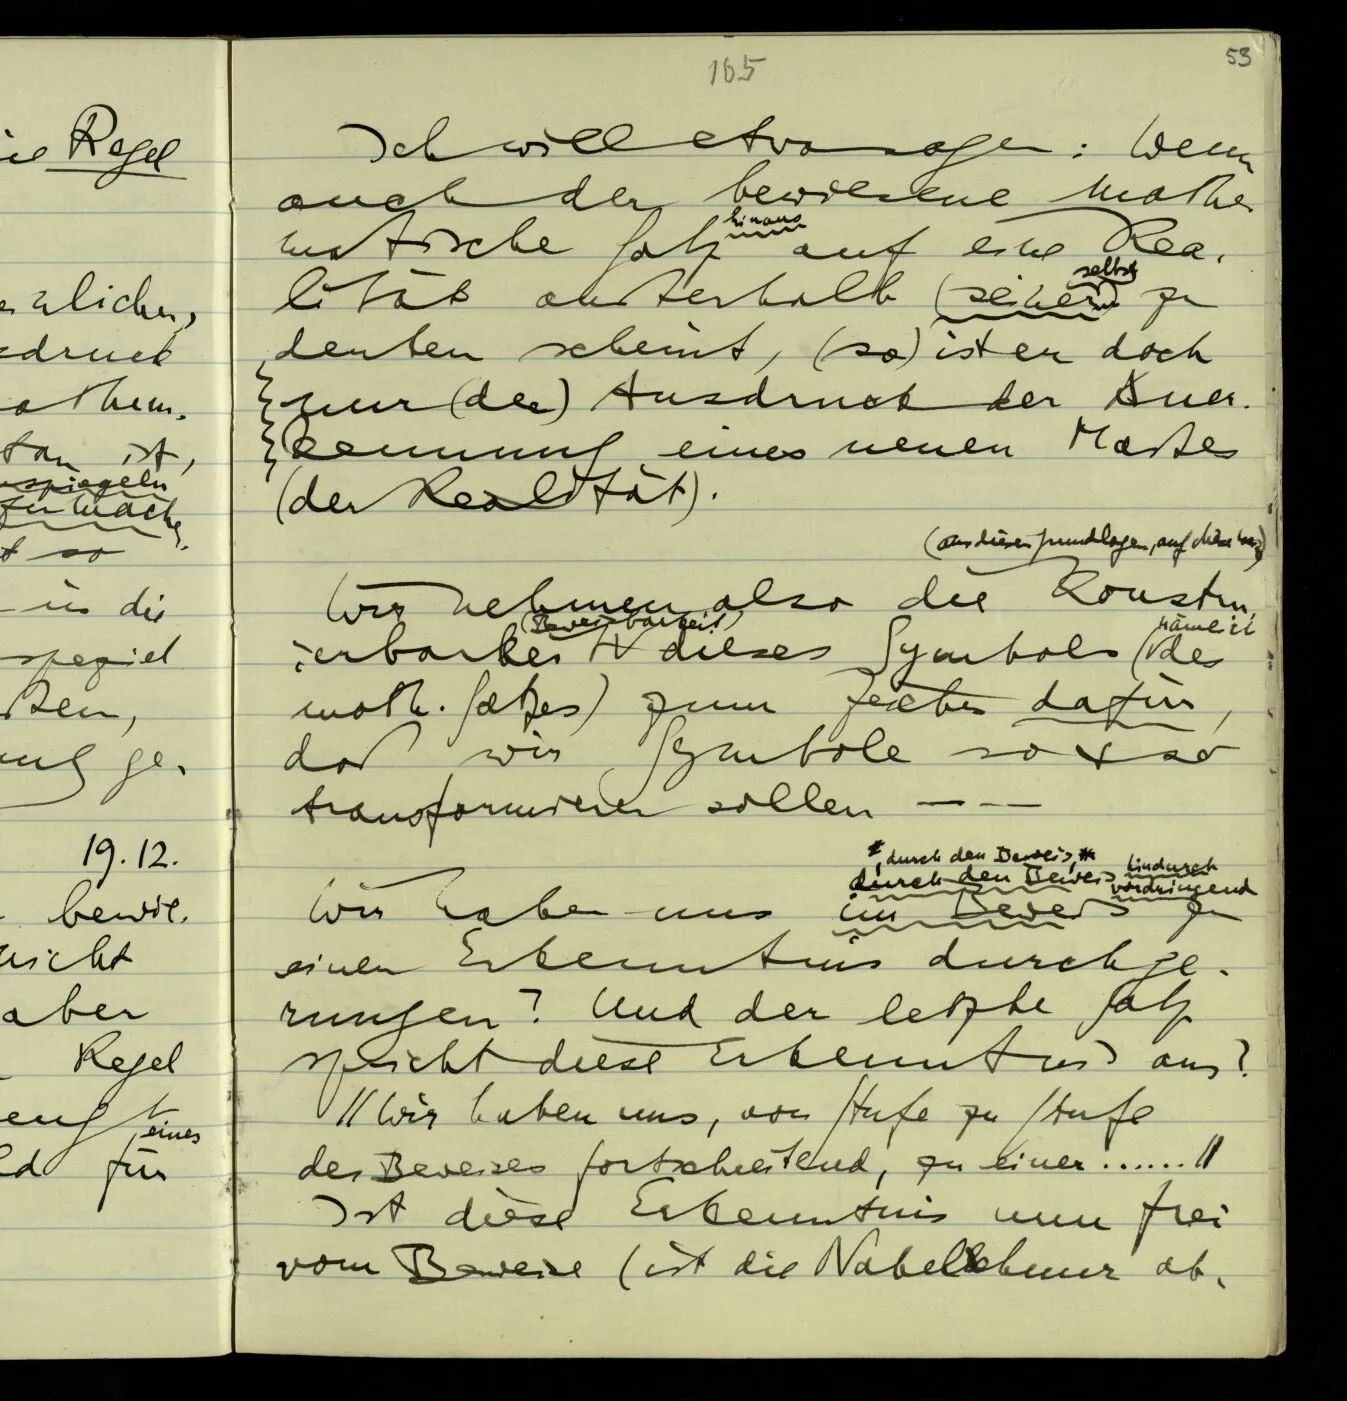 ie Regel
rlicher,
sdruck
mathem.
tan ist,
t so
in die
speziel
ung ge-
19.12.
bewie-
nicht
aber
Regel
eines
ld für
165
53
Ich will etwa sagen: Wenn
auch der bewiesene mathe-
hinaus
matische Satz auf eine Rea-
selbst
lität außerhalb (seiner) zu
deuten scheint, (so) ist er doch
nur (der) Ausdruck der Aner-
kennung eines neuen Maßes
(der Realität).
(aus diesen Grundlagen, auf diese Weise)
Wir nehmen also die Konstru-
(Beweisbarkeit) nämlich
ierbarkeit dieses Symbols (des
math. Satzes) zum Zeichen dafür,
daß wir Symbole so & so
transformieren sollen – – –
durch den Beweis,
durch den Beweis hindurch
vordringend
Wir haben uns im Beweis zu
einer Erkenntnis durchge-
rungen? Und der letzte Satz
spricht diese Erkenntnis aus?
// Wir haben uns, von Stufe zu Stufe
des Beweises fortschreitend, zu einer ...... //
Ist diese Erkenntnis nun frei
vom Beweise (ist die Nabelschnur ab-